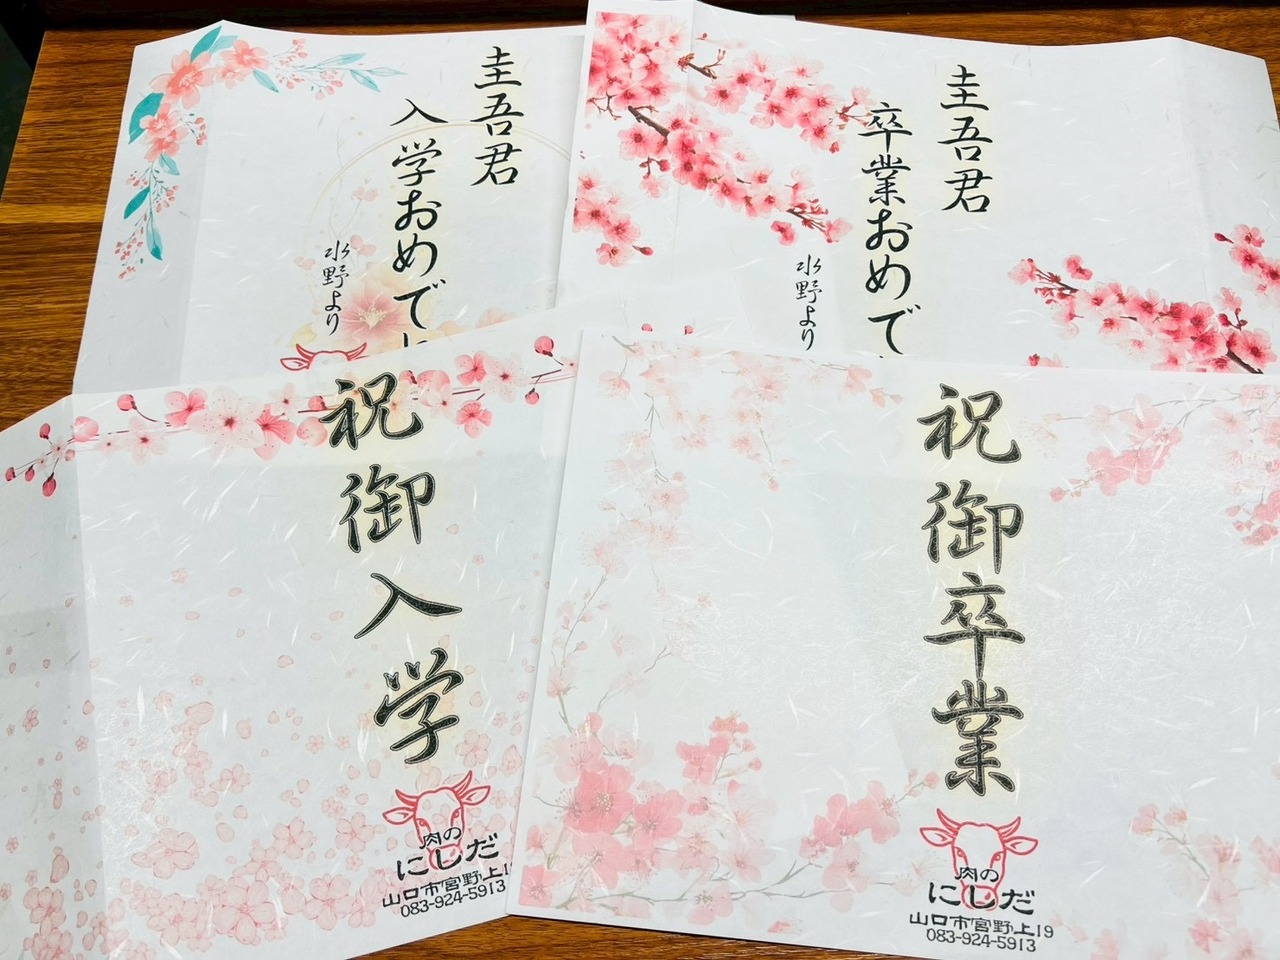 圭吾君
入学おめでと
水野より
圭吾君
卒業おめで
水野より
祝御入学
肉の
にしだ
山口市宮野上1
083-924-5913
祝御卒業
肉の
にしだ
山口市宮野上19
083-924-5913